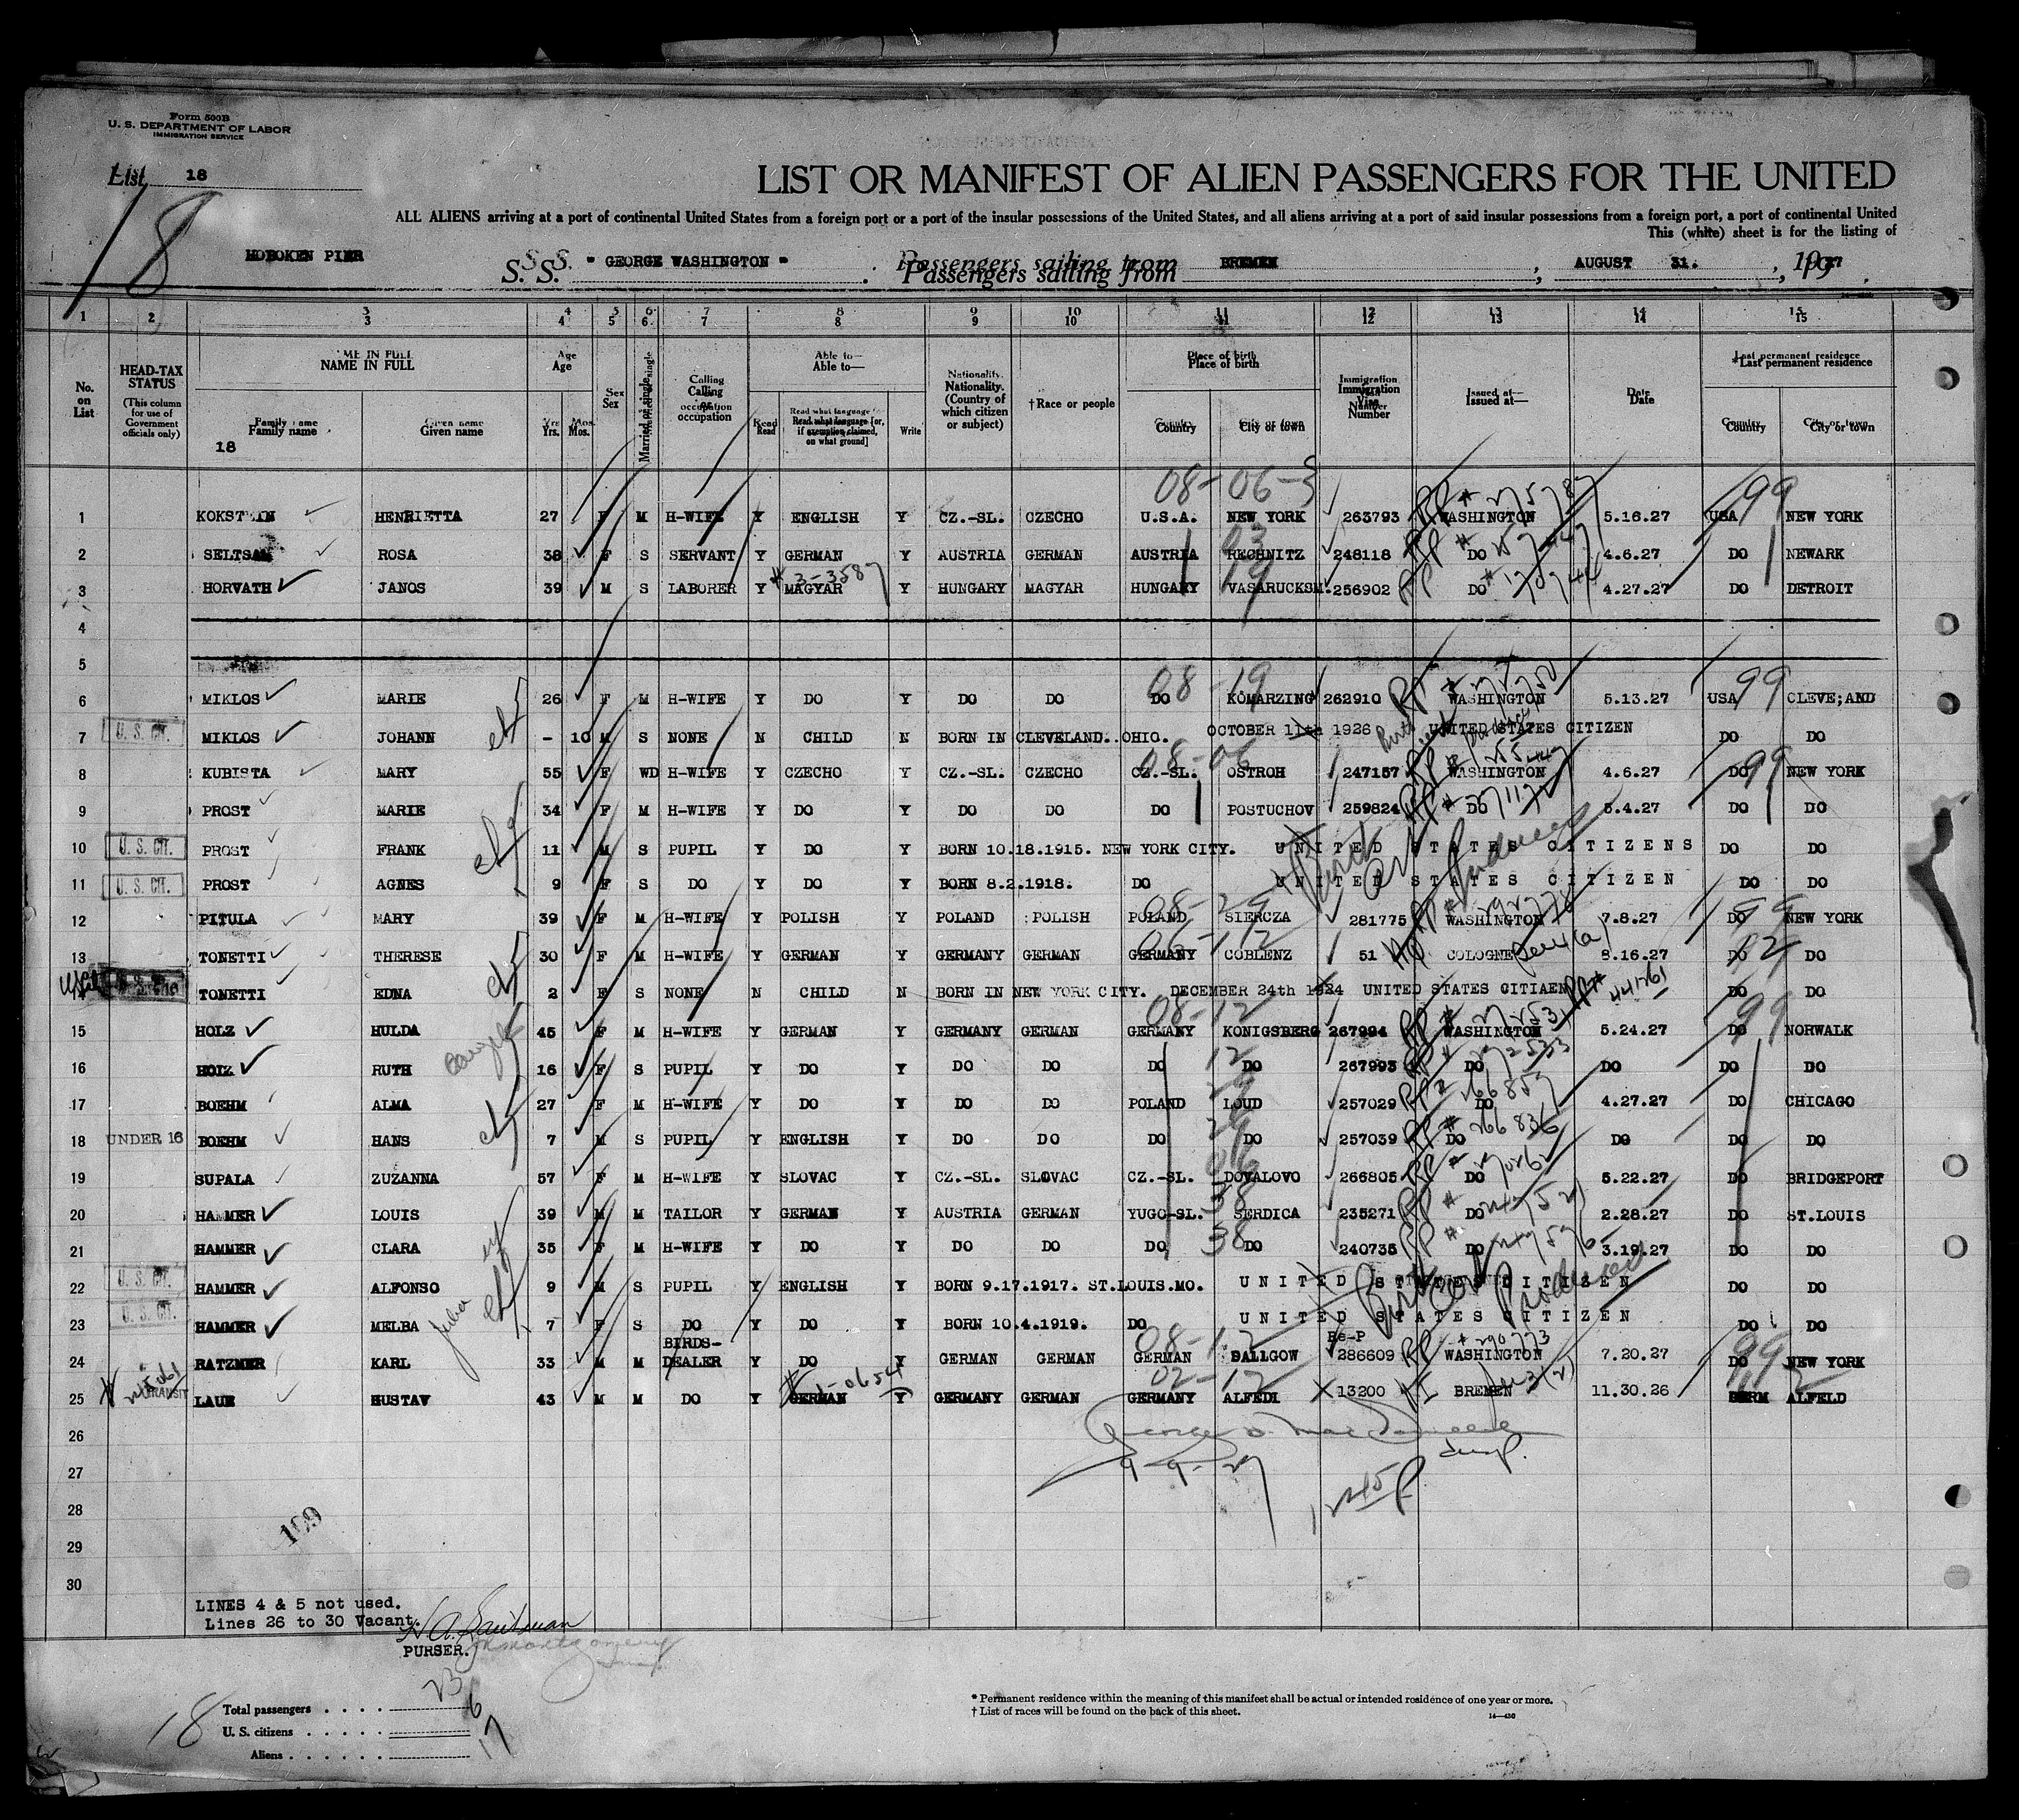 Form 500B
U. S. DEPARTMENT OF LABOR
IMMIGRATION SERVICE
List 18
18
LIST OR MANIFEST OF ALIEN PASSENGERS FOR THE UNITED
ALL ALIENS arriving at a port of continental United States from a foreign port or a port of the insular possessions of the United States, and all aliens arriving at a port of said insular possessions from a foreign port, a port of continental United
This (white) sheet is for the listing of
HOBOKEN PIER S. S. " GEORGE WASHINGTON " Passengers sailing from BREMEN, AUGUST 31., 1927
1 2 3 4 5 6 7 8 9 10 11 12 13 14 15
No. on List
HEAD-TAX STATUS (This column for use of Government officials only)
NAME IN FULL Family name Given name
18
Age Yrs. Mos.
Sex
Married or single
Calling or occupation
Able to— Read Read what language [or, if exemption claimed, on what ground] Write
Nationality. (Country of which citizen or subject)
†Race or people
Place of birth Country City or town
Immigration Visa Number
Issued at—
Date
*Last permanent residence Country City or town
08-06-3 99
1 HENRIETTA 27 F M H-WIFE Y ENGLISH Y CZ.-SL. CZECHO U.S.A. NEW YORK 263793 WASHINGTON 5.16.27 USA NEW YORK
2 ROSA 38 F S SERVANT Y GERMAN Y AUSTRIA GERMAN AUSTRIA RECHNITZ 248118 DO 4.6.27 DO NEWARK
3 HORVATH JANOS 39 M S LABORER Y MAGYAR Y HUNGARY MAGYAR HUNGARY VASARUCKSM. 256902 DO 4.27.27 DO DETROIT
4
5
08-19 99
6 MIKLOS MARIE 26 F M H-WIFE Y DO Y DO DO DO KOMARZING 262910 WASHINGTON 5.13.27 USA CLEVE;AND
7 U. S. CIT. MIKLOS JOHANN - 10 M S NONE N CHILD N BORN IN CLEVELAND. OHIO. OCTOBER 11th 1926 UNITED STATES CITIZEN DO DO
08-06 99
8 KUBISTA MARY 55 F WD H-WIFE Y CZECHO Y CZ.-SL. CZECHO CZ.-SL. OSTROH 247157 WASHINGTON 4.6.27 DO NEW YORK
9 PROST MARIE 34 F M H-WIFE Y DO Y DO DO DO POSTUCHOV 259824 DO 5.4.27 DO DO
10 U. S. CIT. PROST FRANK 11 M S PUPIL Y DO Y BORN 10.18.1915. NEW YORK CITY. UNITED STATES CITIZENS DO DO
11 U. S. CIT. PROST AGNES 9 F S DO Y DO Y BORN 8.2.1918. DO UNITED STATES CITIZEN DO DO
08-29 99
12 PITULA MARY 39 F M H-WIFE Y POLISH Y POLAND POLISH POLAND SIERCZA 281775 WASHINGTON 7.8.27 DO NEW YORK
12
13 TONETTI THERESE 30 F M H-WIFE Y GERMAN Y GERMANY GERMAN GERMANY COBLENZ 51 COLOGNE 8.16.27 DO DO
TONETTI EDNA 2 F S NONE N CHILD N BORN IN NEW YORK CITY. DECEMBER 24th 1924 UNITED STATES CITIAEN DO DO
08-12 99
15 HOLZ HULDA 45 F M H-WIFE Y GERMAN Y GERMANY GERMAN GERMANY KONIGSBERG 267994 WASHINGTON 5.24.27 DO NORWALK
16 HOLZ RUTH 16 F S PUPIL Y DO Y DO DO DO DO 267993 DO DO DO DO
17 BOEHM ALMA 27 F M H-WIFE Y DO Y DO DO POLAND LOUD 257029 DO 4.27.27 DO CHICAGO
18 UNDER 16 BOEHM HANS 7 M S PUPIL Y ENGLISH Y DO DO DO DO 257039 DO DO DO DO
19 SUPALA ZUZANNA 57 F M H-WIFE Y SLOVAC Y CZ.-SL. SLOVAC CZ.-SL. DOVALOVO 266805 DO 5.22.27 DO BRIDGEPORT
20 HAMMER LOUIS 39 M M TAILOR Y GERMAN Y AUSTRIA GERMAN YUGO-SL. SERDICA 235271 DO 2.28.27 DO ST.LOUIS
21 HAMMER CLARA 35 F M H-WIFE Y DO Y DO DO DO DO 240735 DO 3.19.27 DO DO
22 U. S. CIT. HAMMER ALFONSO 9 M S PUPIL Y ENGLISH Y BORN 9.17.1917. ST.LOUIS.MO. UNITED STATES CITIZEN DO DO
23 U. S. CIT. HAMMER MELBA 7 F S DO Y DO Y BORN 10.4.1919. DO UNITED STATES CITIZEN DO DO
08-12 Re-P 99
24 RATZMER KARL 33 M M BIRDS-DEALER Y DO Y GERMAN GERMAN GERMAN DALLGOW 286609 WASHINGTON 7.20.27 DO NEW YORK
02-12
25 TRANSIT LAUE GUSTAV 43 M M DO Y GERMAN Y GERMANY GERMAN GERMANY ALFEDI 13200 BREMEN 11.30.26 GERM ALFELD
26
9-9-27
27
28
199
29
30
LINES 4 & 5 not used.
Lines 26 to 30 Vacant.
PURSER.
Total passengers . . . . 23
U. S. citizens . . . . . 6
Aliens . . . . . . 17
18
* Permanent residence within the meaning of this manifest shall be actual or intended residence of one year or more.
† List of races will be found on the back of this sheet.
14—430